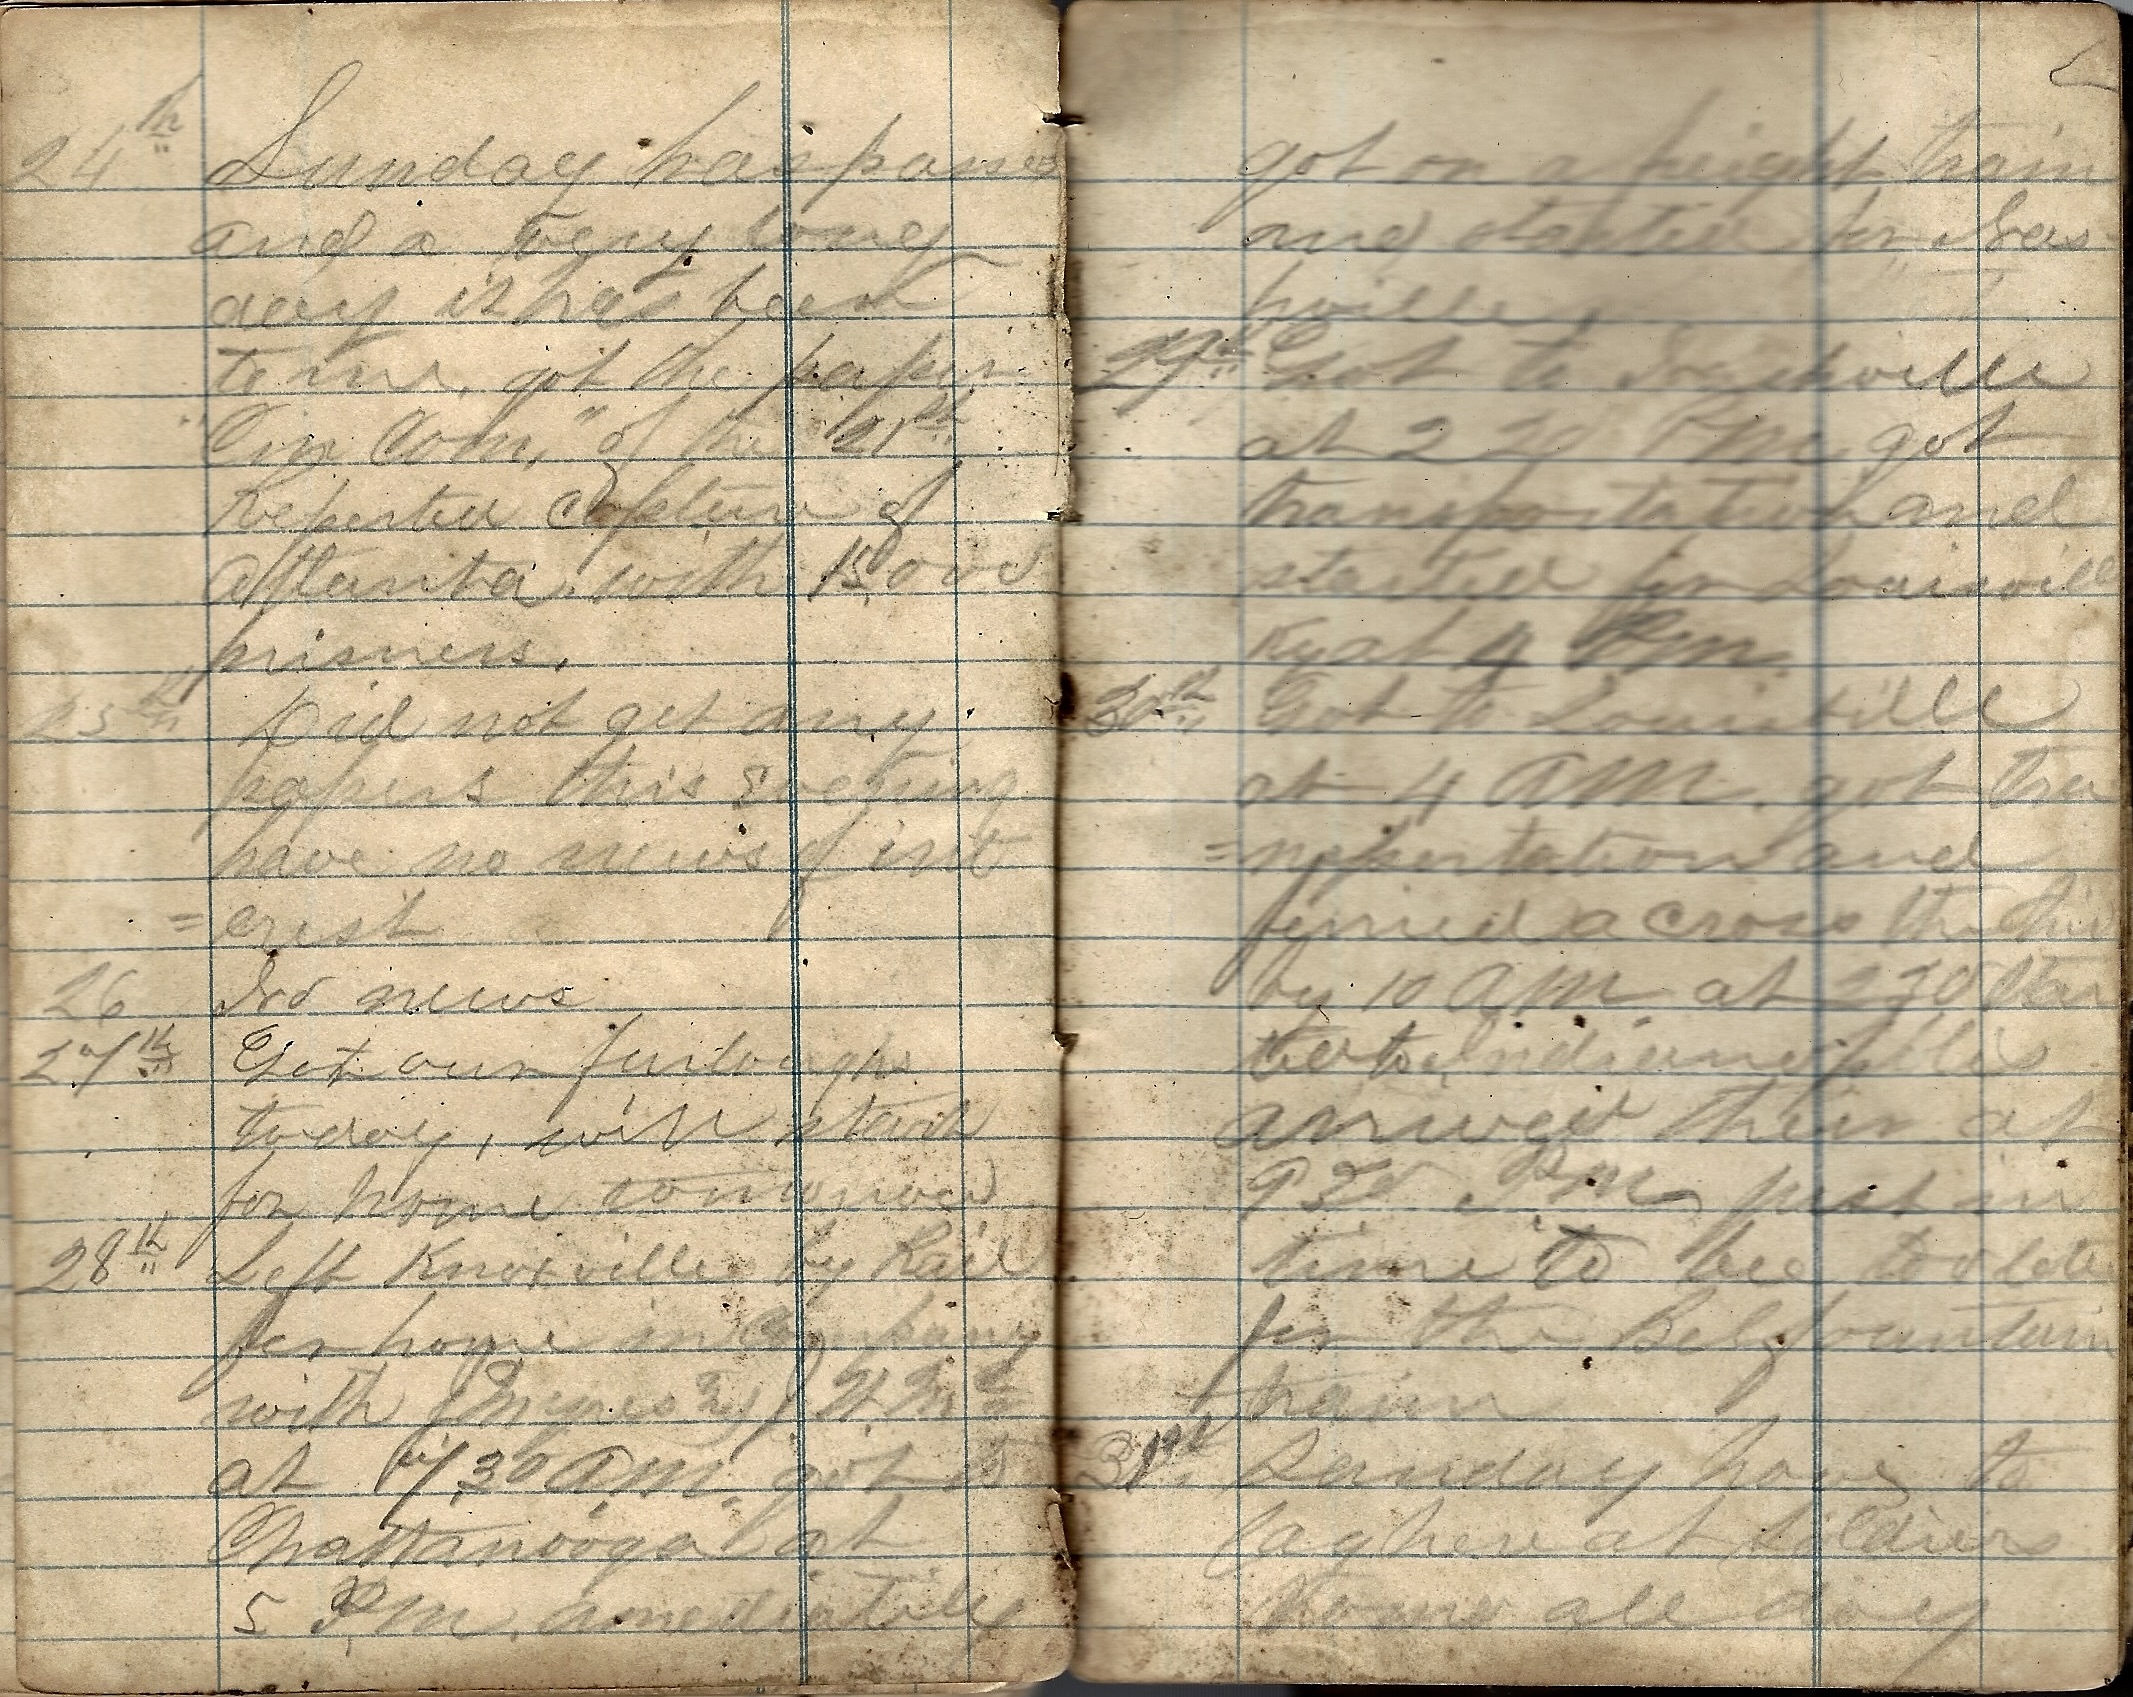 24th Sunday has passed
and a very long
day it has been
to me, got the paper
"Cin Com," of the 21st
Reported Capture of
Atlanta. with 15,000
prisners.
25th Did not get any
papers this Evening
have no news of int
= erest
26 No news
27th Got our furloughs
today, will start
for home tomorrow
28th Left Knoxville by Rail
for home in Company
with
at 7,30 A.M. got to
Chattanooga at
5 P.M. amediatily
got on a freight train
and started for Nas-
hville,
29th Got to Nashville
at 2 P.M. got
transportation and
started for Louisvill
Ky at 4 P.M.
30th Got to Louisville
at 4 A.M. got tra
= nsportation and
ferried across the
by 10 A.M. at 2 30
Indianapolis
arrived thier at
9 30 P.M. just in
time to be too late
for the Belfountain
train
31st Sunday have to
lay here at Soldiers
Home all day